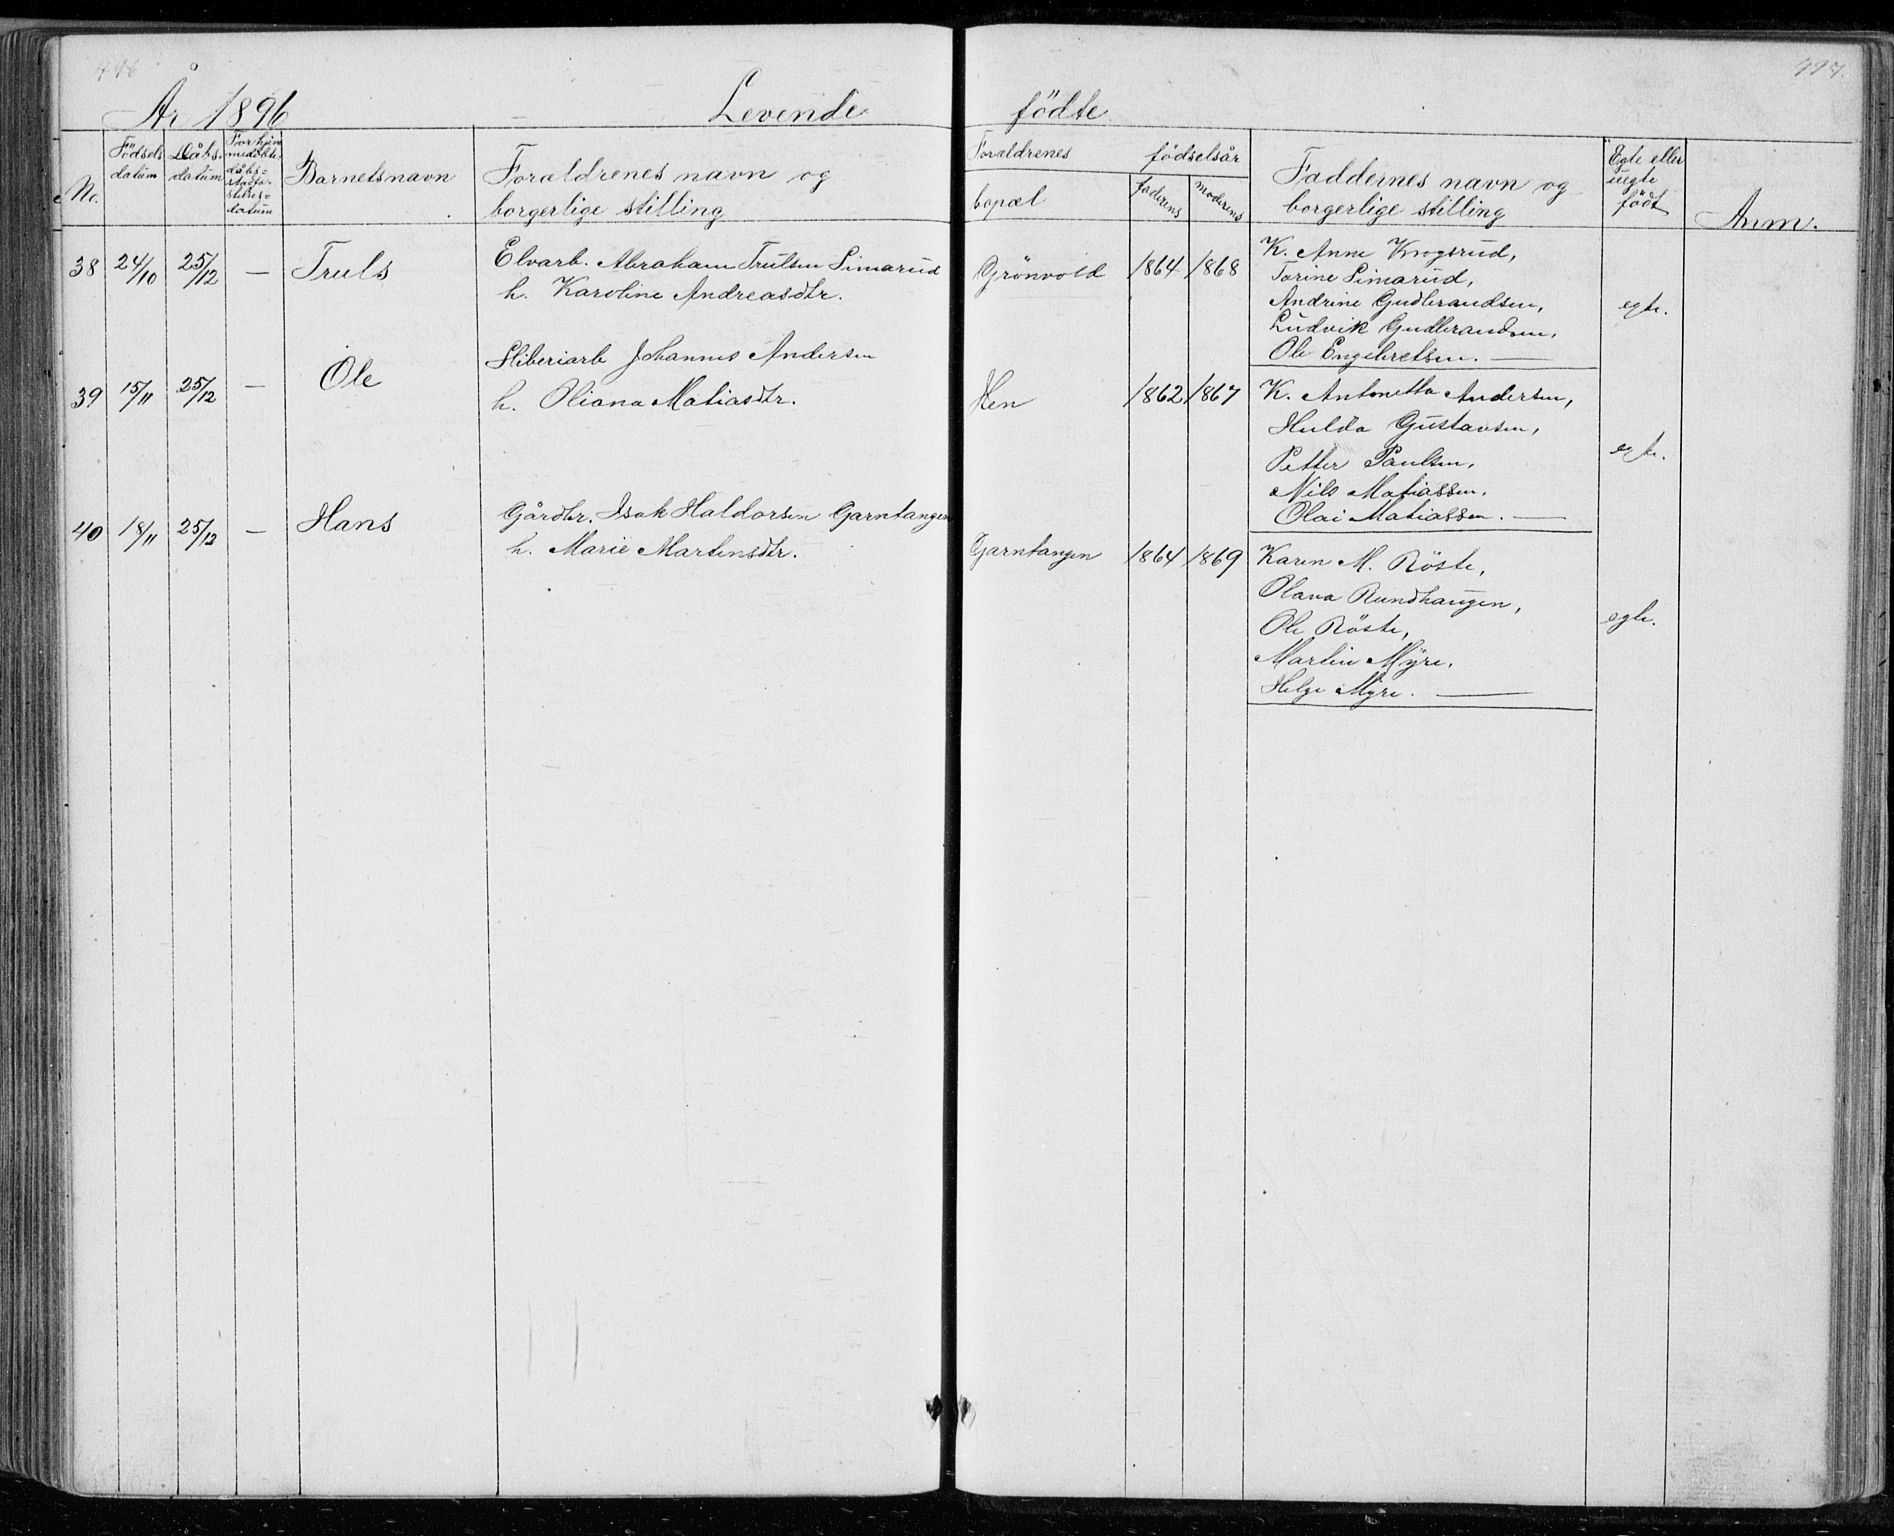 496
497.
År 1896
Levende
födte
No.
Födsels
datum
Dåbs-
datum
Forhjem
medöbte
dåbs=
stadfæ-
stelses=
datum
Barnetsnavn
Forældrenes navn og
borgerlige stilling
Forældrenes
bopæl
födselsår
faderens
moderens
Faddernes navn og
borgerlige stilling
Egte eller
uegte
född
Anm.
38 24/10 25/12 — Truls
Elvarb. Abraham Trulsen Simarud
h. Karoline Andreasdtr.
Grönvold 1864 1868
K. Anne Krogsrud,
Torine Simarud,
Andrine Gudbrandsen,
Ludvik Gudbrandsen,
Ole Engebretsen. —
egte.
39 15/11 25/12 — Ole
Sliberiarb Johannes Andersen
h. Oliana Matiasdtr.
Hen 1862 1867
K. Antonetta Andersen,
Hulda Gustavsen,
Petter Paulsen,
Nils Matiassen,
Olai Matiassen. —
egte.
40 18/11 25/12 — Hans
Gårdbr. Isak Haldorsen Garntangen
h. Marie Martinsdtr.
Garntangen 1864 1869
Karen M. Röste,
Olava Rundhaugen,
Ole Röste,
Martin Myre,
Helge Myre. —
egte.